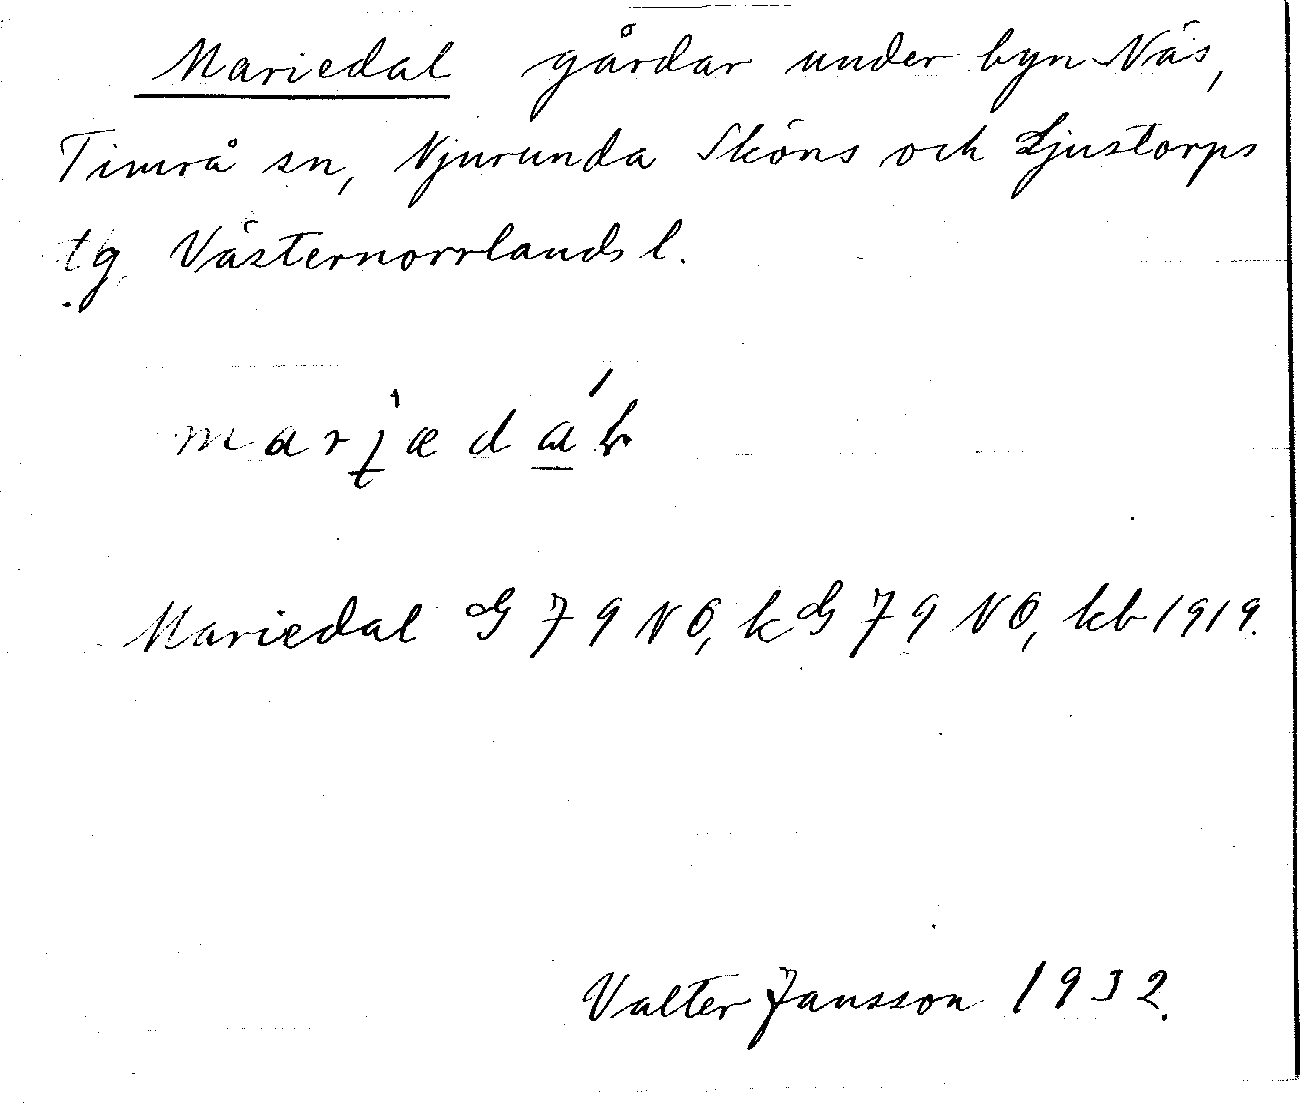 Mariedal gårdar under byn Näs,
Timrå sn, Njurunda Sköns och Ljustorps
tg Västernorrlands l.
marjædál
Mariedal G 79 NO, kG 79 NO, kb 1919.
Valter Jansson 1932.